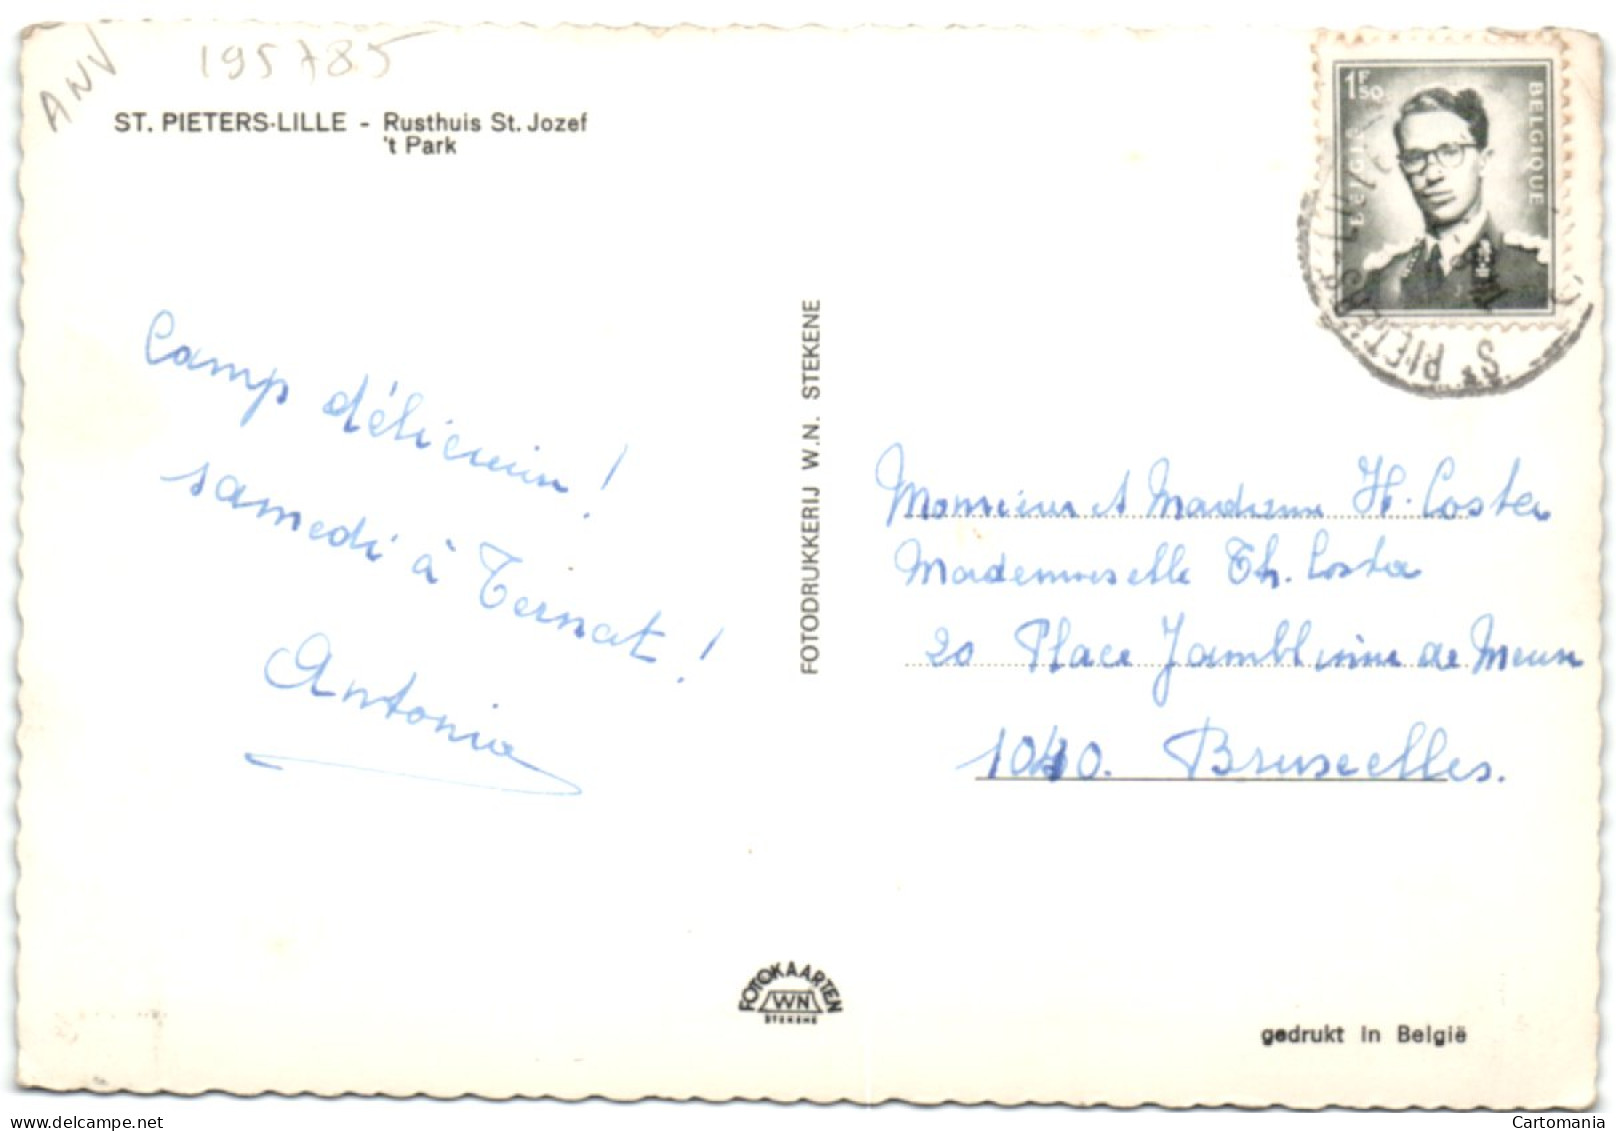 ANV
195785
ST. PIETERS-LILLE - Rusthuis St. Jozef
't Park
1F50
BELGIE
BELGIQUE
ST PIETERS-LILLE
Camp délicieux !
samedi à Ternat !
Antonia
FOTODRUKKERIJ W.N. STEKENE
Monsieur et Madame H. Coster
Mademoiselle Th. Coster
20 Place Jamblinne de Meux
1040. Bruxelles.
FOTOKAARTEN
WN
STEKENE
gedrukt in België
http://www.delcampe.net
Cartomania